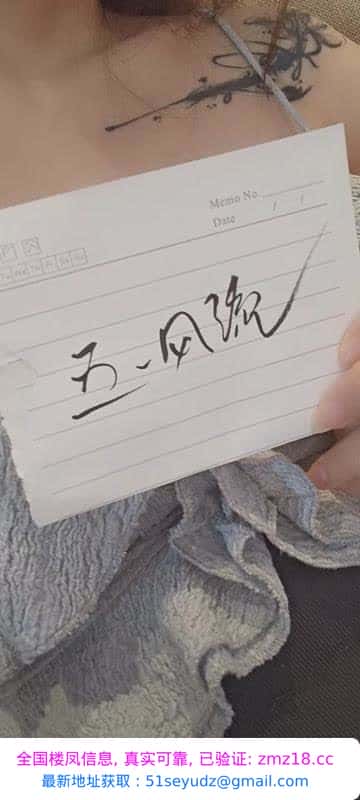 Memo No.
Date / /
五一风流
全国楼凤信息, 真实可靠, 已验证: zmz18.cc
最新地址获取：51seyudz@gmail.com